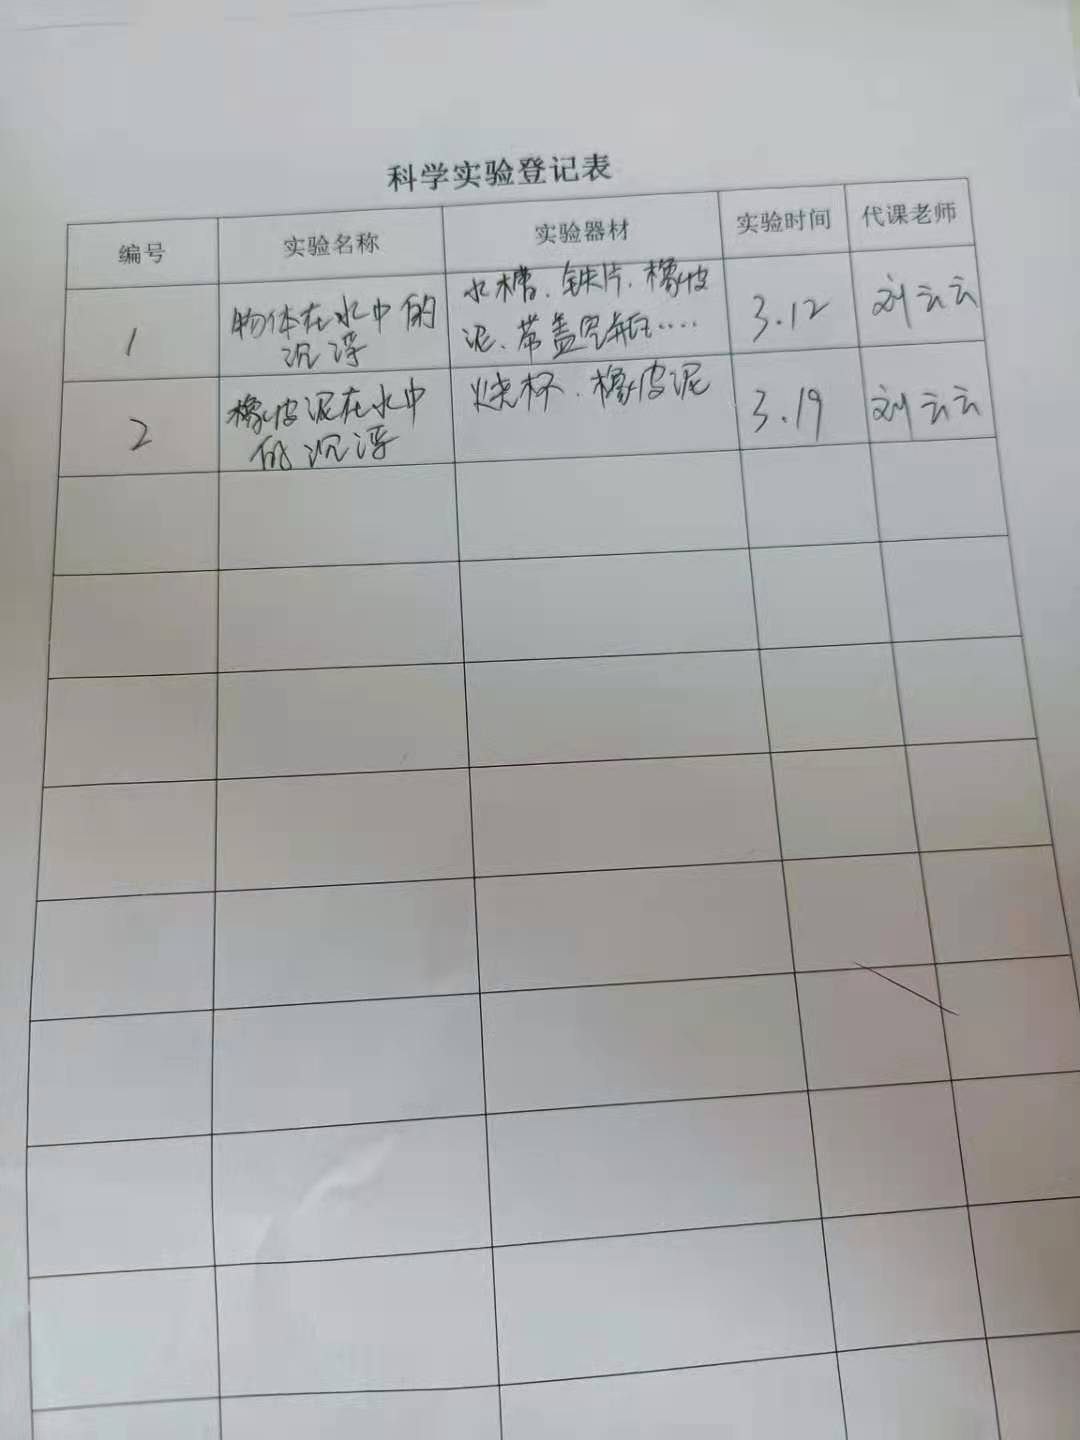 科学实验登记表
编号 实验名称 实验器材 实验时间 代课老师
1 物体在水中的沉浮 水槽、铁片、橡皮泥、带盖空瓶····· 3.12 刘云云
2 橡皮泥在水中的沉浮 烧杯、橡皮泥 3.19 刘云云